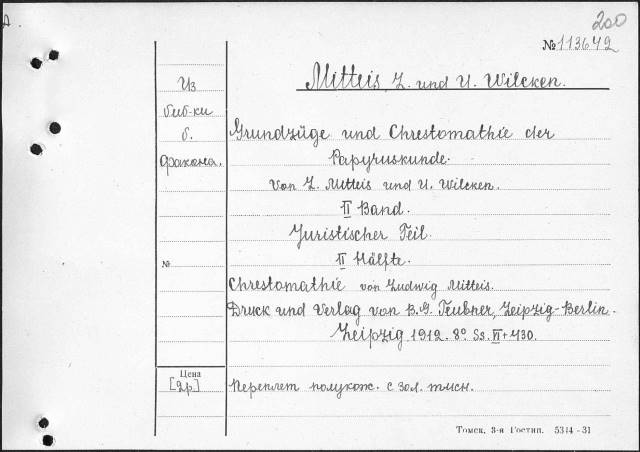 200
№ 113642
Mitteis, L. und U. Wilcken.
Из
биб-ки
б.
фракона.
№
Grundzüge und Chrestomathie der
Papyruskunde.
Von L. Mitteis und U. Wilcken.
II Band.
Juristischer Teil.
II Hälfte.
Chrestomathie von Ludwig Mitteis.
Druck und Verlag von B. G. Teubner, Leipzig-Berlin.
Leipzig 1912. 8° Ss. VI + 430.
Цена
[2р.]
Переплет полукож. с зол. тисн.
Томск. 3-я Гостип. 5344-31